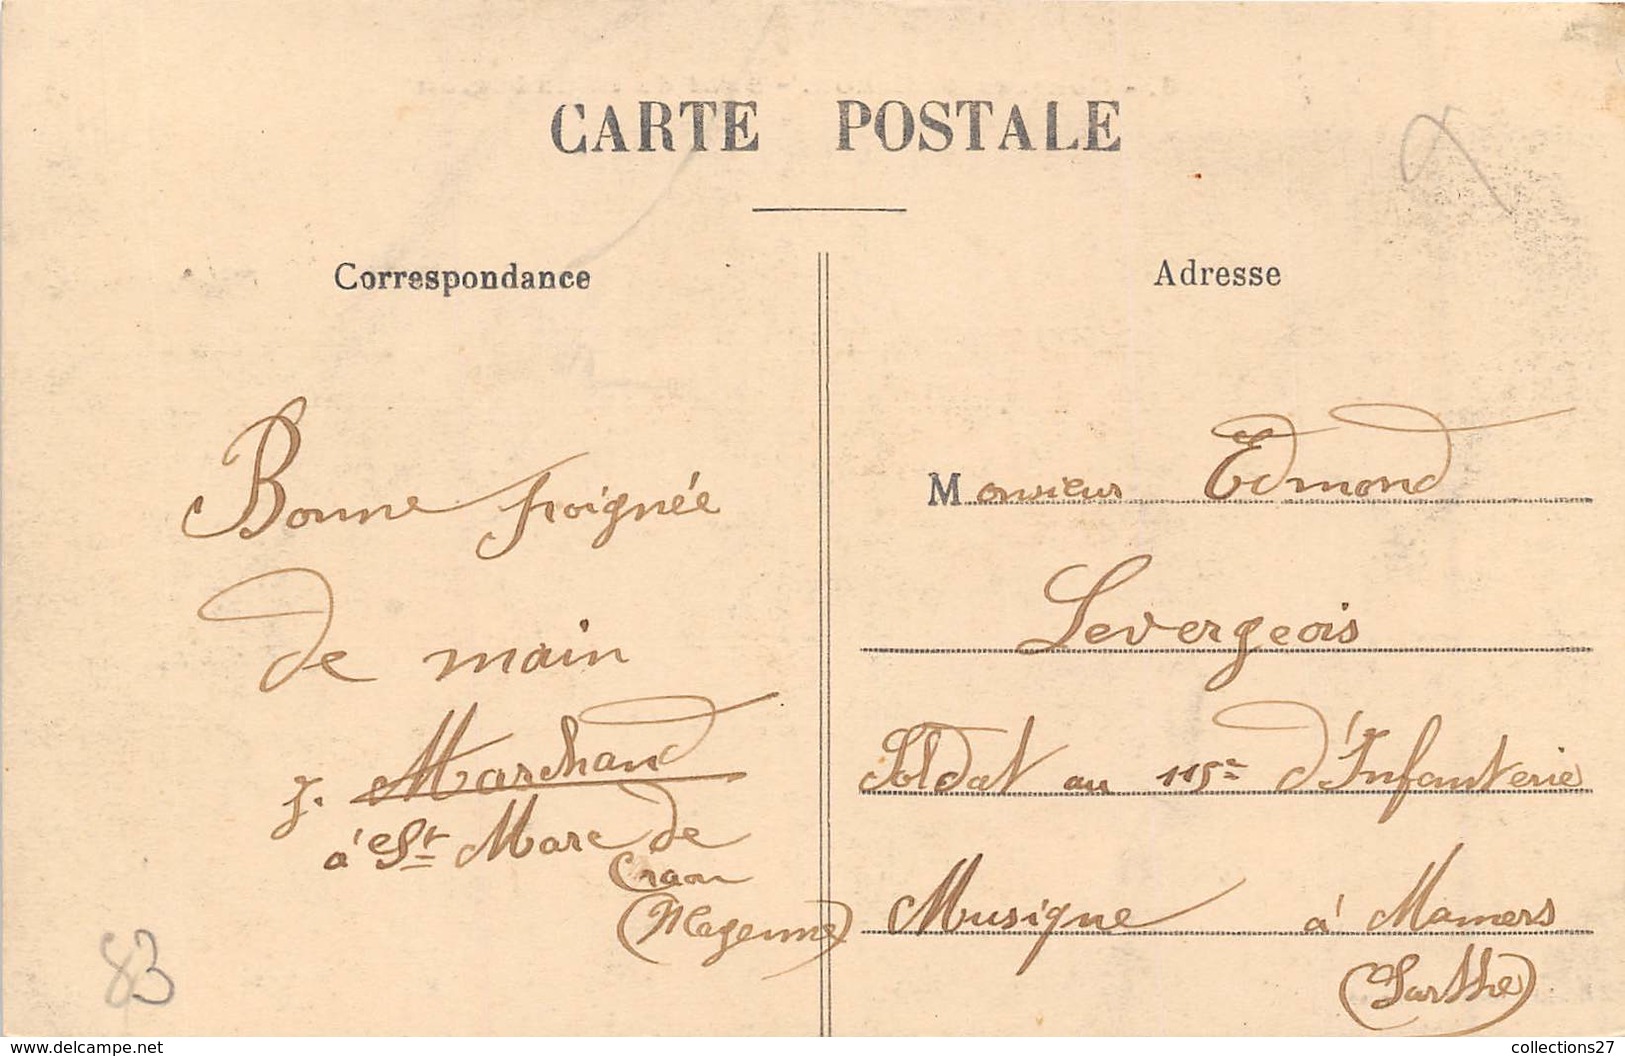 CARTE POSTALE
Correspondance
Bonne poignée
de main
J. Marchand
à St Marc de
Craon
(Mayenne)
83
Adresse
Monsieur Edmond
Levergeois
Soldat au 115e d'Infanterie
Musique à Mamers
(Sarthe)
www.delcampe.net
collections27